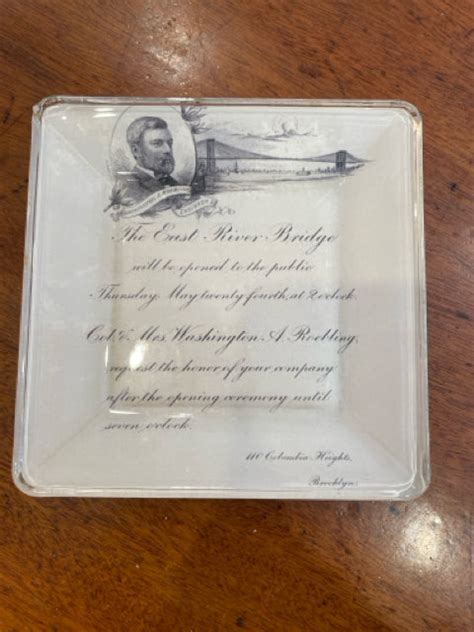 Engineer
The East River Bridge
will be opened to the public
Thursday, May twenty fourth, at 2 o'clock.
Col. & Mrs. Washington A. Roebling,
request the honor of your company
after the opening ceremony until
seven o'clock.
110 Columbia Heights,
Brooklyn.